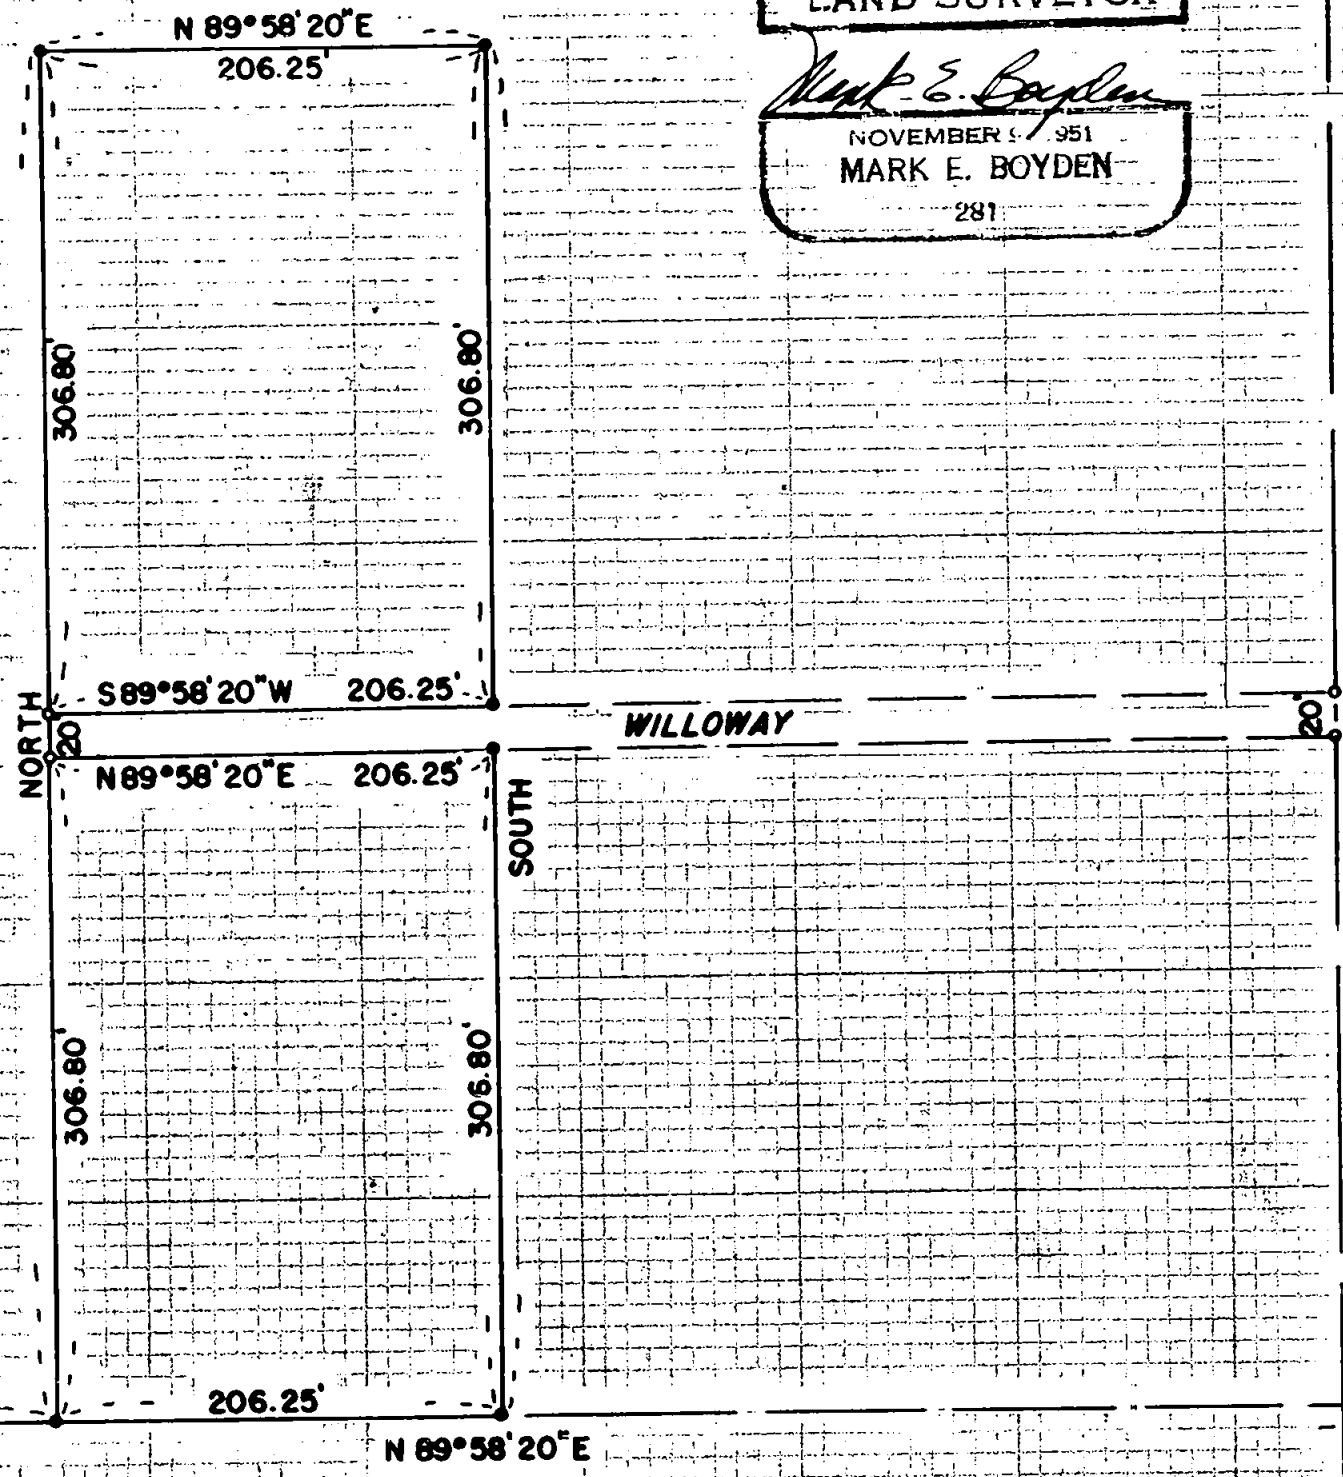 LAND SURVEYOR
N 89°58'20"E
206.25'
Mark E. Boyden
NOVEMBER 951
MARK E. BOYDEN
281
306.80'
306.80'
S 89°58'20"W 206.25'
NORTH
20'
WILLOWAY
20'
N 89°58'20"E 206.25'
SOUTH
306.80'
306.80'
206.25'
N 89°58'20"E